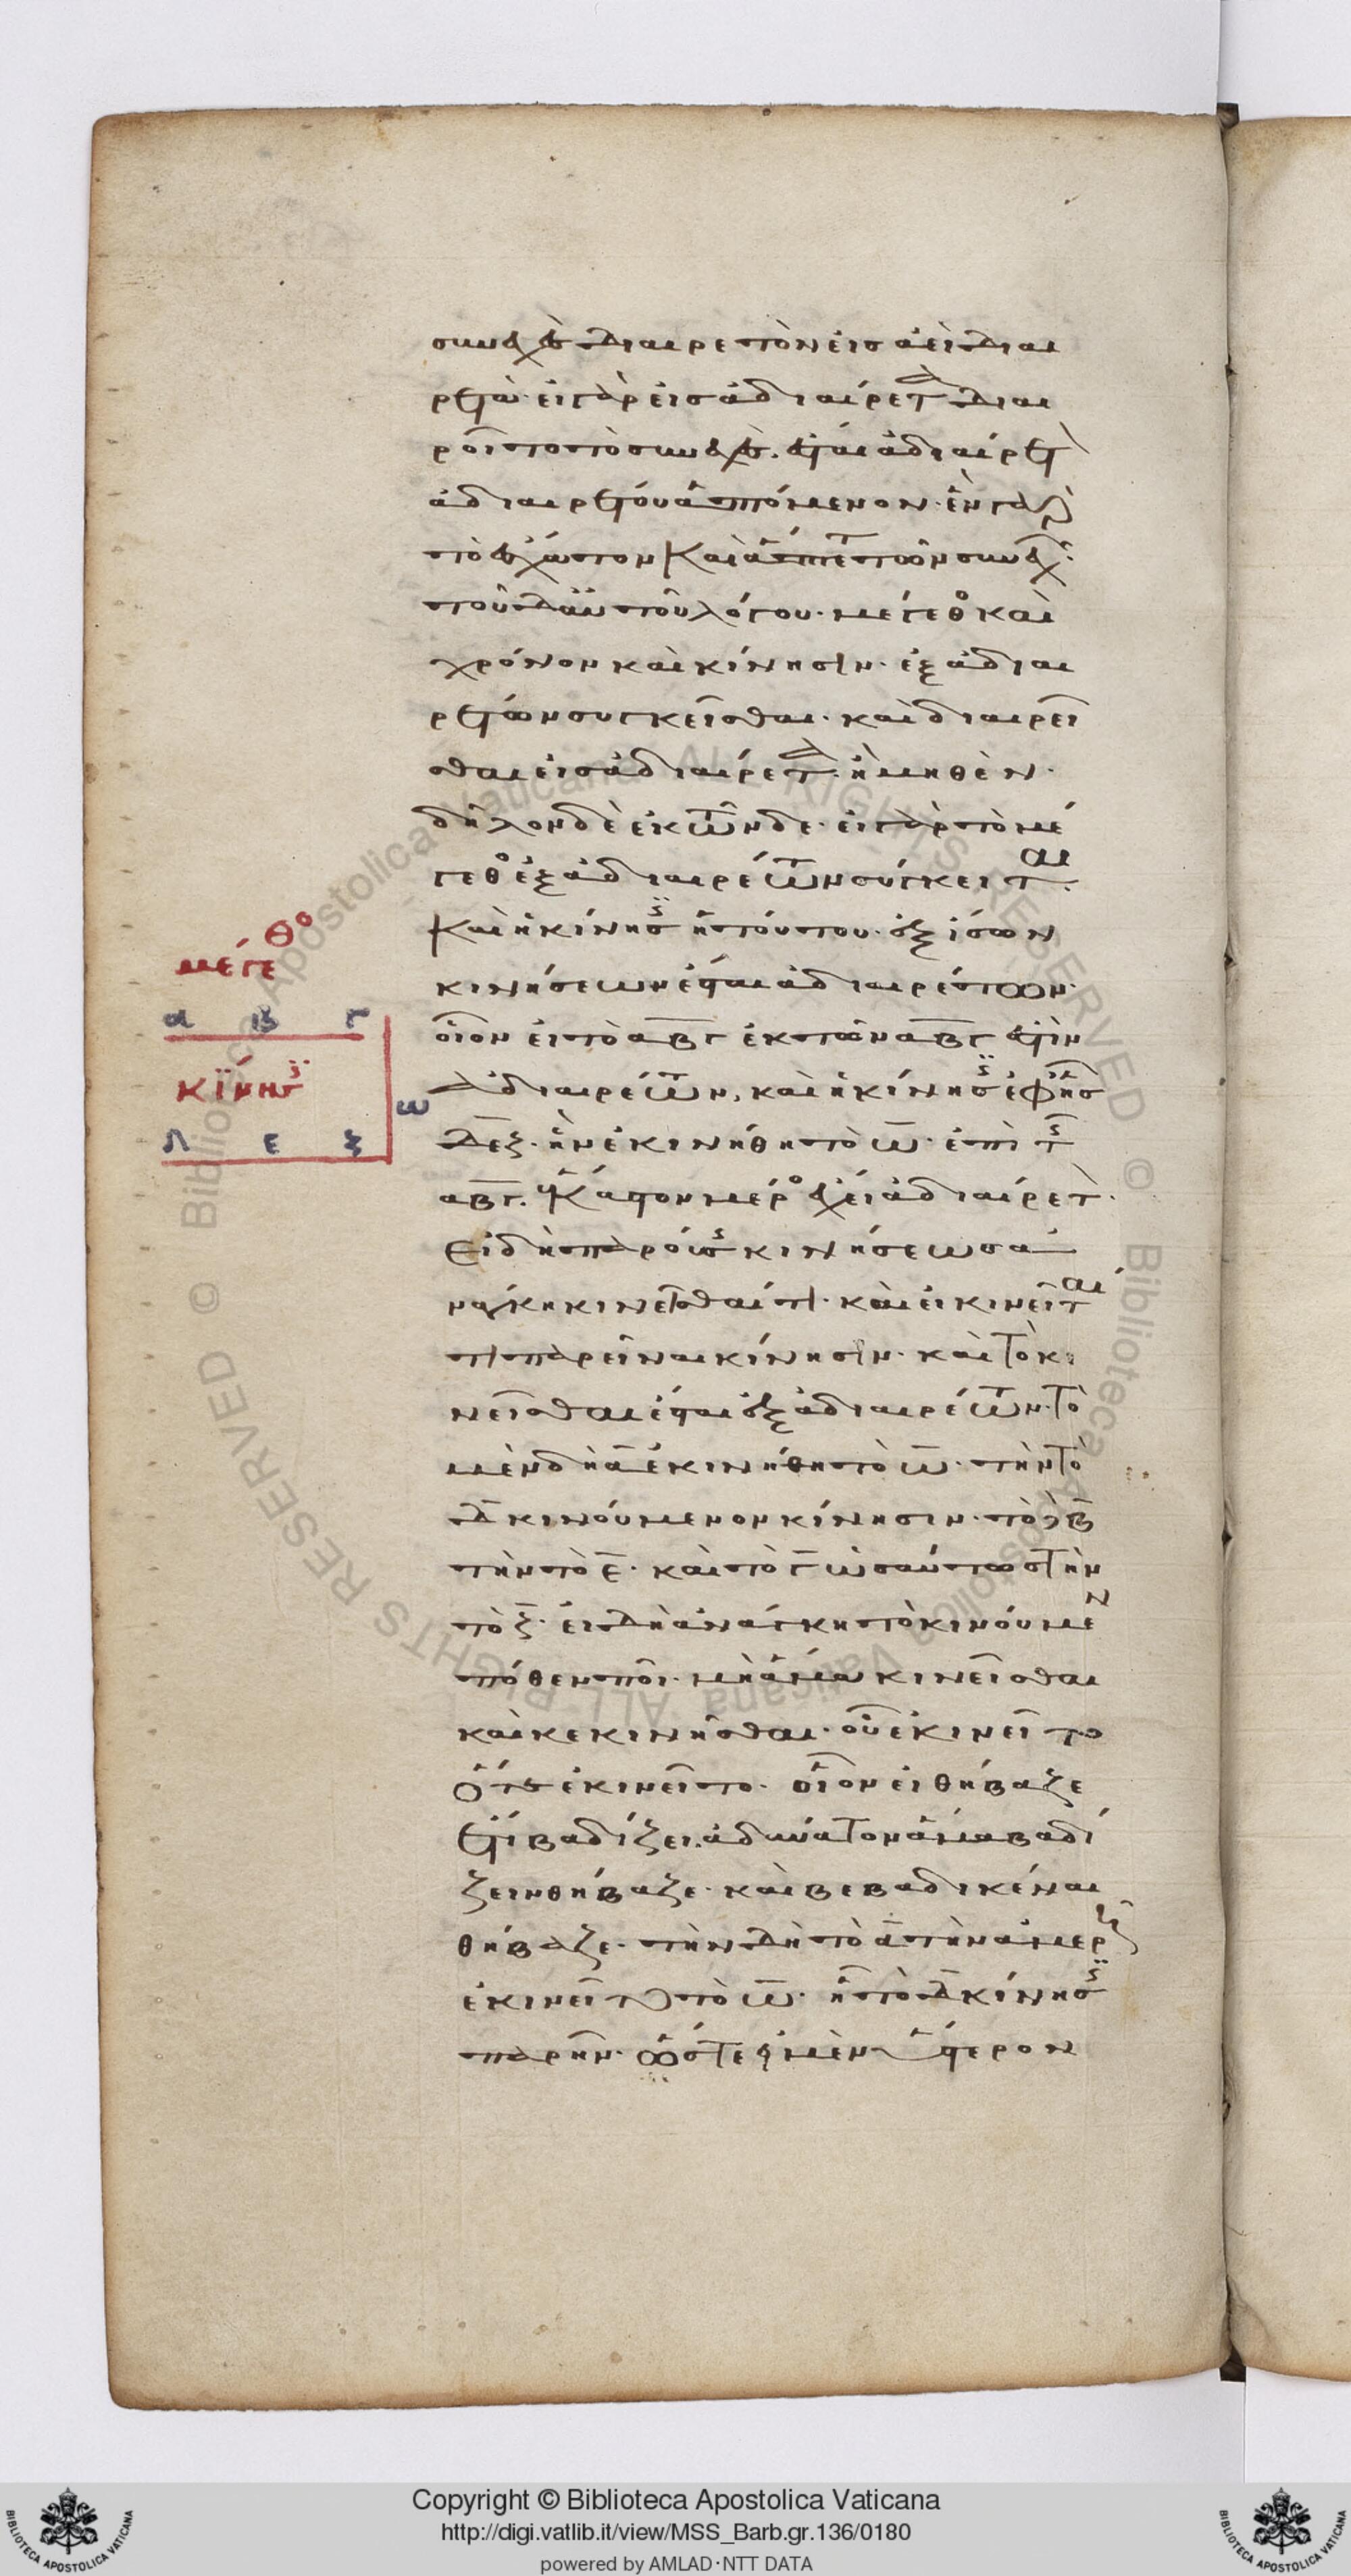 συνεχὲς διαιρετὸν εἰς ἀεὶ διαι
ρετά· εἰ γὰρ εἰς ἀδιαίρετα διαι
ροῖτο τὸ συνεχὲς. ἔσται ἀδιαίρετον
ἀδιαιρέτου ἁπτόμενον· ἓν γὰρ
τὸ ἔσχατον καὶ ἅπτεται τῶν συνεχῶν·
τοῦ δ' αὐτοῦ λόγου· μέγεθος καὶ
χρόνον καὶ κίνησιν· ἐξ ἀδιαι
ρέτων συγκεῖσθαι· καὶ διαιρεῖ
σθαι εἰς ἀδιαίρετα· ἢ μηθέν·
δῆλον δὲ ἐκ τῶνδε· εἰ γὰρ τὸ μέ
γεθος ἐξ ἀδιαιρέτων σύγκειται·
καὶ ἡ κίνησις ἡ τούτου· ἐξ ἴσων
κινήσεων ἔσται ἀδιαιρέτων·
οἷον εἰ τὸ αβγ ἐκ τῶν αβγ ἐστὶν
ἀδιαιρέτων, καὶ ἡ κίνησις ἐφ' ἧς
δεζ· ἣν ἐκινήθη τὸ ω· ἐπὶ τῆς
αβγ. ἕκαστον μέρος ἔχει ἀδιαίρετον·
εἰ δὴ παρούσης κινήσεως ἀ
νάγκη κινεῖσθαί τι· καὶ εἰ κινεῖταί
τι παρεῖναι κίνησιν· καὶ τὸ κι
νεῖσθαι ἔσται ἐξ ἀδιαιρέτων· τὸ
μὲν δὴ α ἐκινήθη τὸ ω· τὴν τὸ
δ κινούμενον κίνησιν· τὸ δὲ β
τὴν τὸ ε· καὶ τὸ γ ὡσαύτως τὴν
τὸ ζ· εἰ δὴ ἀνάγκη τὸ κινούμενον
πόθεν ποι· μὴ ἅμα κινεῖσθαι
καὶ κεκινῆσθαι· οὗ ἐκινεῖτο
ὅτε ἐκινεῖτο· οἷον εἰ θήβαζέ
τι βαδίζει. ἀδύνατον ἅμα βαδί
ζειν θήβαζε· καὶ βεβαδικέναι
θήβαζε· τὴν δὴ τὸ α τὴν ἀμερῆ
ἐκινεῖτο τὸ ω· ᾗ τὸ δ κίνησις
παρῆν· ὥστε εἰ μὲν ὕστερον
μέγεθος
α β γ
κίνησις
ω
δ ε ζ
Copyright © Biblioteca Apostolica Vaticana
http://digi.vatlib.it/view/MSS_Barb.gr.136/0180
powered by AMLAD·NTT DATA